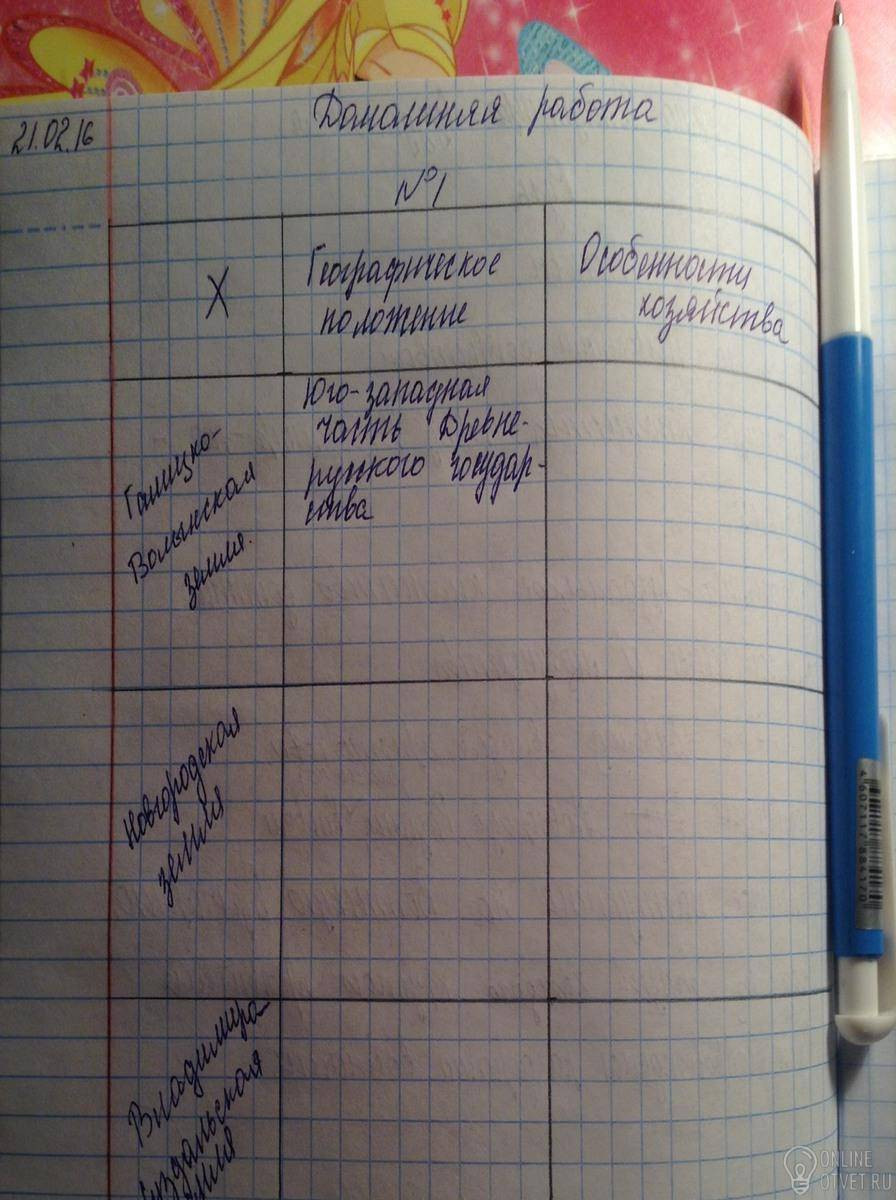 21.02.16
Домашняя работа
№1
X
Географическое
положение
Особенности
хозяйства
Галицко-
Волынская
земля.
Юго-западная
часть Древне-
русского государ-
ства
Новгородская
земля
Владимиро
Суздальская
земля
4607117884170
ONLINE
OTVET.RU